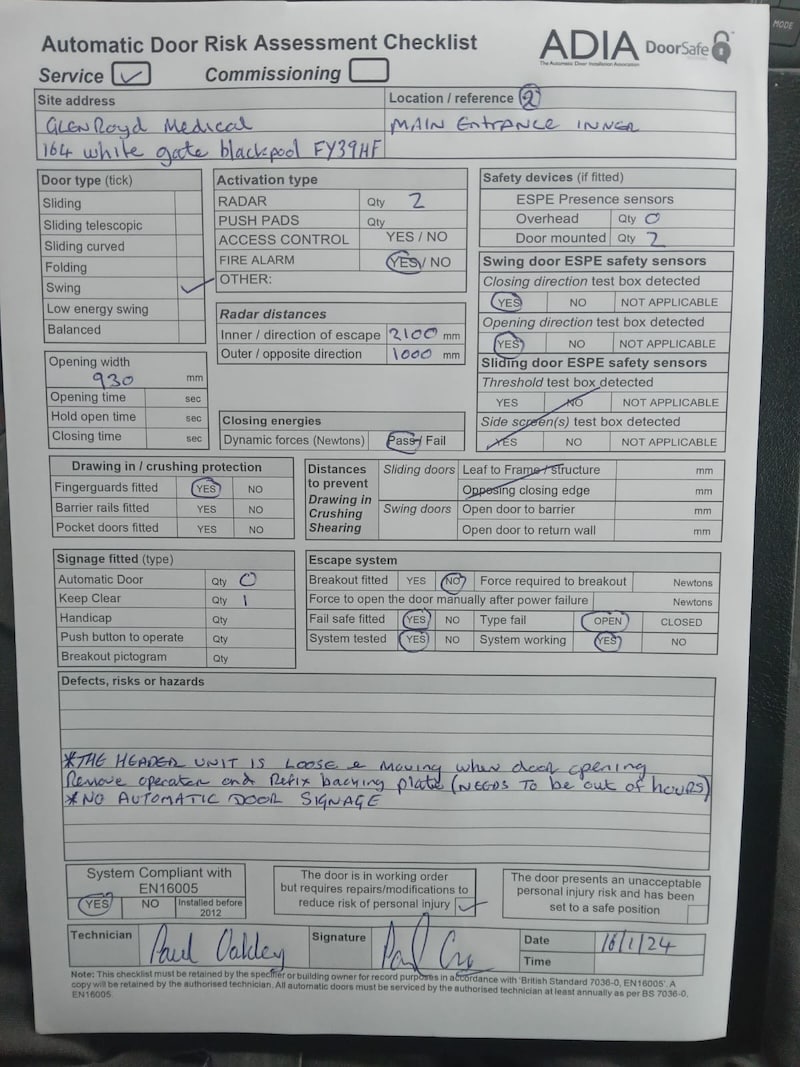 MODE
Automatic Door Risk Assessment Checklist
ADIA
The Automatic Door Installation Association
DoorSafe
Service ✓ Commissioning
Site address
GLENRoyd Medical
164 white gate blackpool FY39HF
Location / reference 2
MAIN ENtRANCE INNER
Door type (tick)
Sliding
Sliding telescopic
Sliding curved
Folding
Swing ✓
Low energy swing
Balanced
Activation type
RADAR Qty 2
PUSH PADS Qty
ACCESS CONTROL YES / NO
FIRE ALARM YES / NO
OTHER:
Radar distances
Inner / direction of escape 2100 mm
Outer / opposite direction 1000 mm
Safety devices (if fitted)
ESPE Presence sensors
Overhead Qty 0
Door mounted Qty 2
Swing door ESPE safety sensors
Closing direction test box detected
YES NO NOT APPLICABLE
Opening direction test box detected
YES NO NOT APPLICABLE
Sliding door ESPE safety sensors
Threshold test box detected
YES NO NOT APPLICABLE
Side screen(s) test box detected
YES NO NOT APPLICABLE
Opening width
930 mm
Opening time sec
Hold open time sec
Closing time sec
Closing energies
Dynamic forces (Newtons) Pass / Fail
Drawing in / crushing protection
Fingerguards fitted YES NO
Barrier rails fitted YES NO
Pocket doors fitted YES NO
Distances to prevent Drawing in Crushing Shearing
Sliding doors Leaf to Frame / structure mm
Opposing closing edge mm
Swing doors Open door to barrier mm
Open door to return wall mm
Signage fitted (type)
Automatic Door Qty 0
Keep Clear Qty 1
Handicap Qty
Push button to operate Qty
Breakout pictogram Qty
Escape system
Breakout fitted YES NO Force required to breakout Newtons
Force to open the door manually after power failure Newtons
Fail safe fitted YES NO Type fail OPEN CLOSED
System tested YES NO System working YES NO
Defects, risks or hazards
*THE HEADER UNIT IS LOOSE & MOVING when door opening
Remove operator and Refix backing plate (NEEDS TO be out of hours)
*NO AUTOMATIC DOOR SIGNAGE
System Compliant with
EN16005
YES NO Installed before 2012
The door is in working order
but requires repairs/modifications to
reduce risk of personal injury ✓
The door presents an unacceptable
personal injury risk and has been
set to a safe position
Technician Paul Oakley Signature Date 16/1/24
Time
Note: This checklist must be retained by the specifier or building owner for record purposes in accordance with 'British Standard 7036-0, EN16005'. A
copy will be retained by the authorised technician. All automatic doors must be serviced by the authorised technician at least annually as per BS 7036-0,
EN16005.